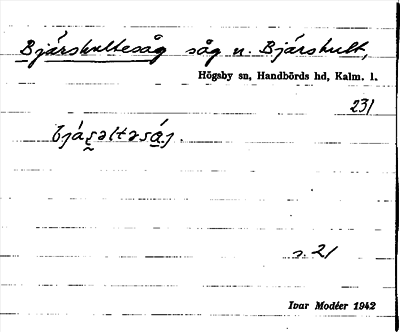 Bjärshultesåg såg n. Bjärshult,
Högsby sn, Handbörds hd, Kalm. l.
231
s. 21
Ivar Modéer 1942